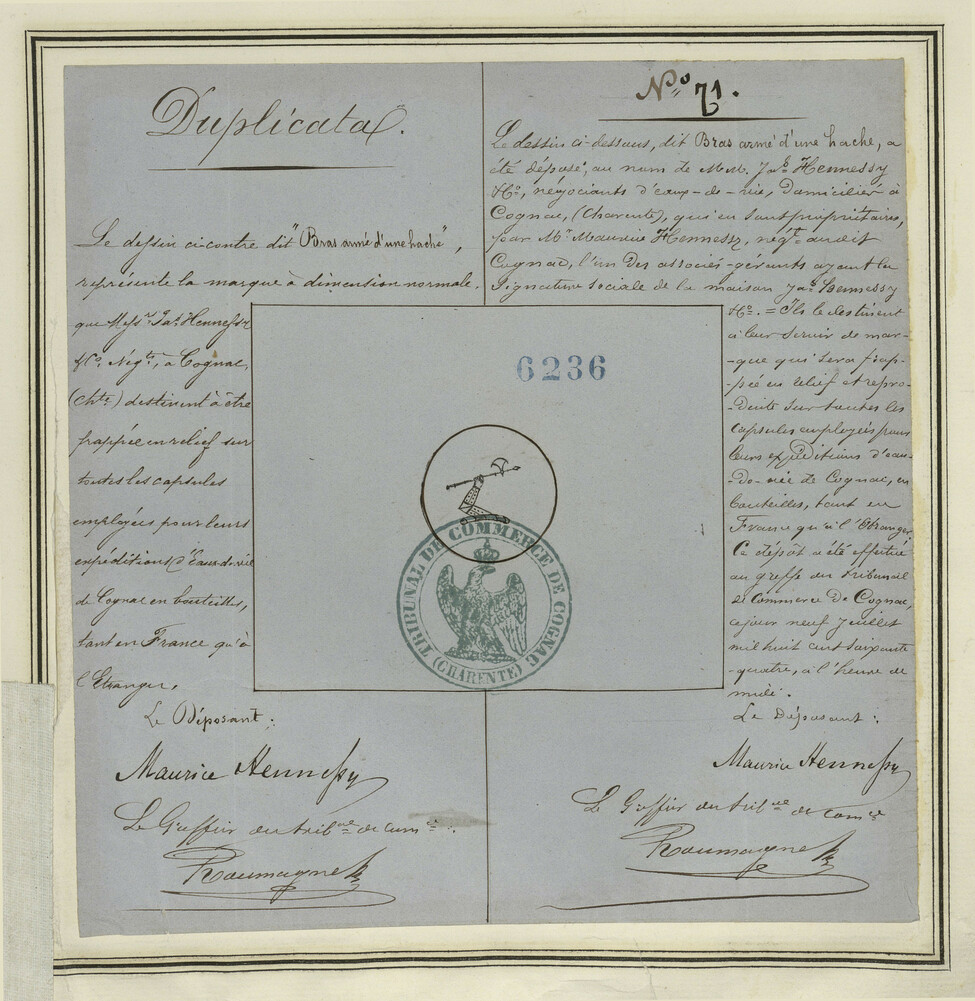 Duplicata.
Le dessin ci-contre dit "Bras armé d'une hache",
représente la marque à dimension normale.
que Messrs. Jas. Hennessy
& Co. Négts., à Cognac,
(Chte.) destinent à être
frappée en relief sur
toutes les capsules
employées pour leurs
expéditions d'Eaux-de-vie
de Cognac en bouteilles,
tant en France qu'à
l'Etranger.
Le Déposant :
Maurice Hennessy
Le Greffier du tribnal de comce :
Roumagne
No. 71.
Le dessin ci-dessous, dit Bras armé d'une hache, a
été déposé, au nom de MM. Jas. Hennessy
& Co., négociants d'eaux-de-vie, domiciliés à
Cognac, (Charente), qui en sont propriétaires,
par Mr. Maurice Hennessy, négt. au dit
Cognac, l'un des associés-gérants ayant la
signature sociale de la maison Jas. Hennessy
& Co. = Ils le destinent
à leur servir de mar-
-que qui sera frap-
-pée en relief et repro-
-duite sur toutes les
capsules employées pour
leurs expéditions d'eau-
-de-vie de Cognac, en
bouteilles, tant en
France qu'à l'Etranger.
Ce dépôt a été effectué
au greffe du tribunal
de Commerce de Cognac,
ce jour neuf Juillet
mil huit cent soixante
-quatre, à l'heure de
midi.
Le Déposant :
Maurice Hennessy
Le Greffier du tribnal de comce
Roumagne
6236
TRIBUNAL DE COMMERCE DE COGNAC
(CHARENTE)